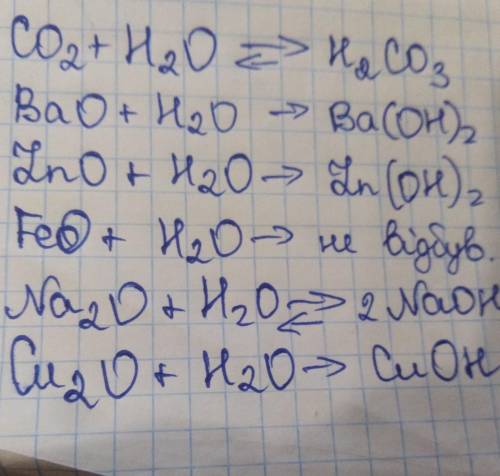 CO₂ + H₂O ⇌ H₂CO₃
BaO + H₂O → Ba(OH)₂
ZnO + H₂O → Zn(OH)₂
FeO + H₂O → не відбув.
Na₂O + H₂O ⇌ 2NaOH
Cu₂O + H₂O → CuOH